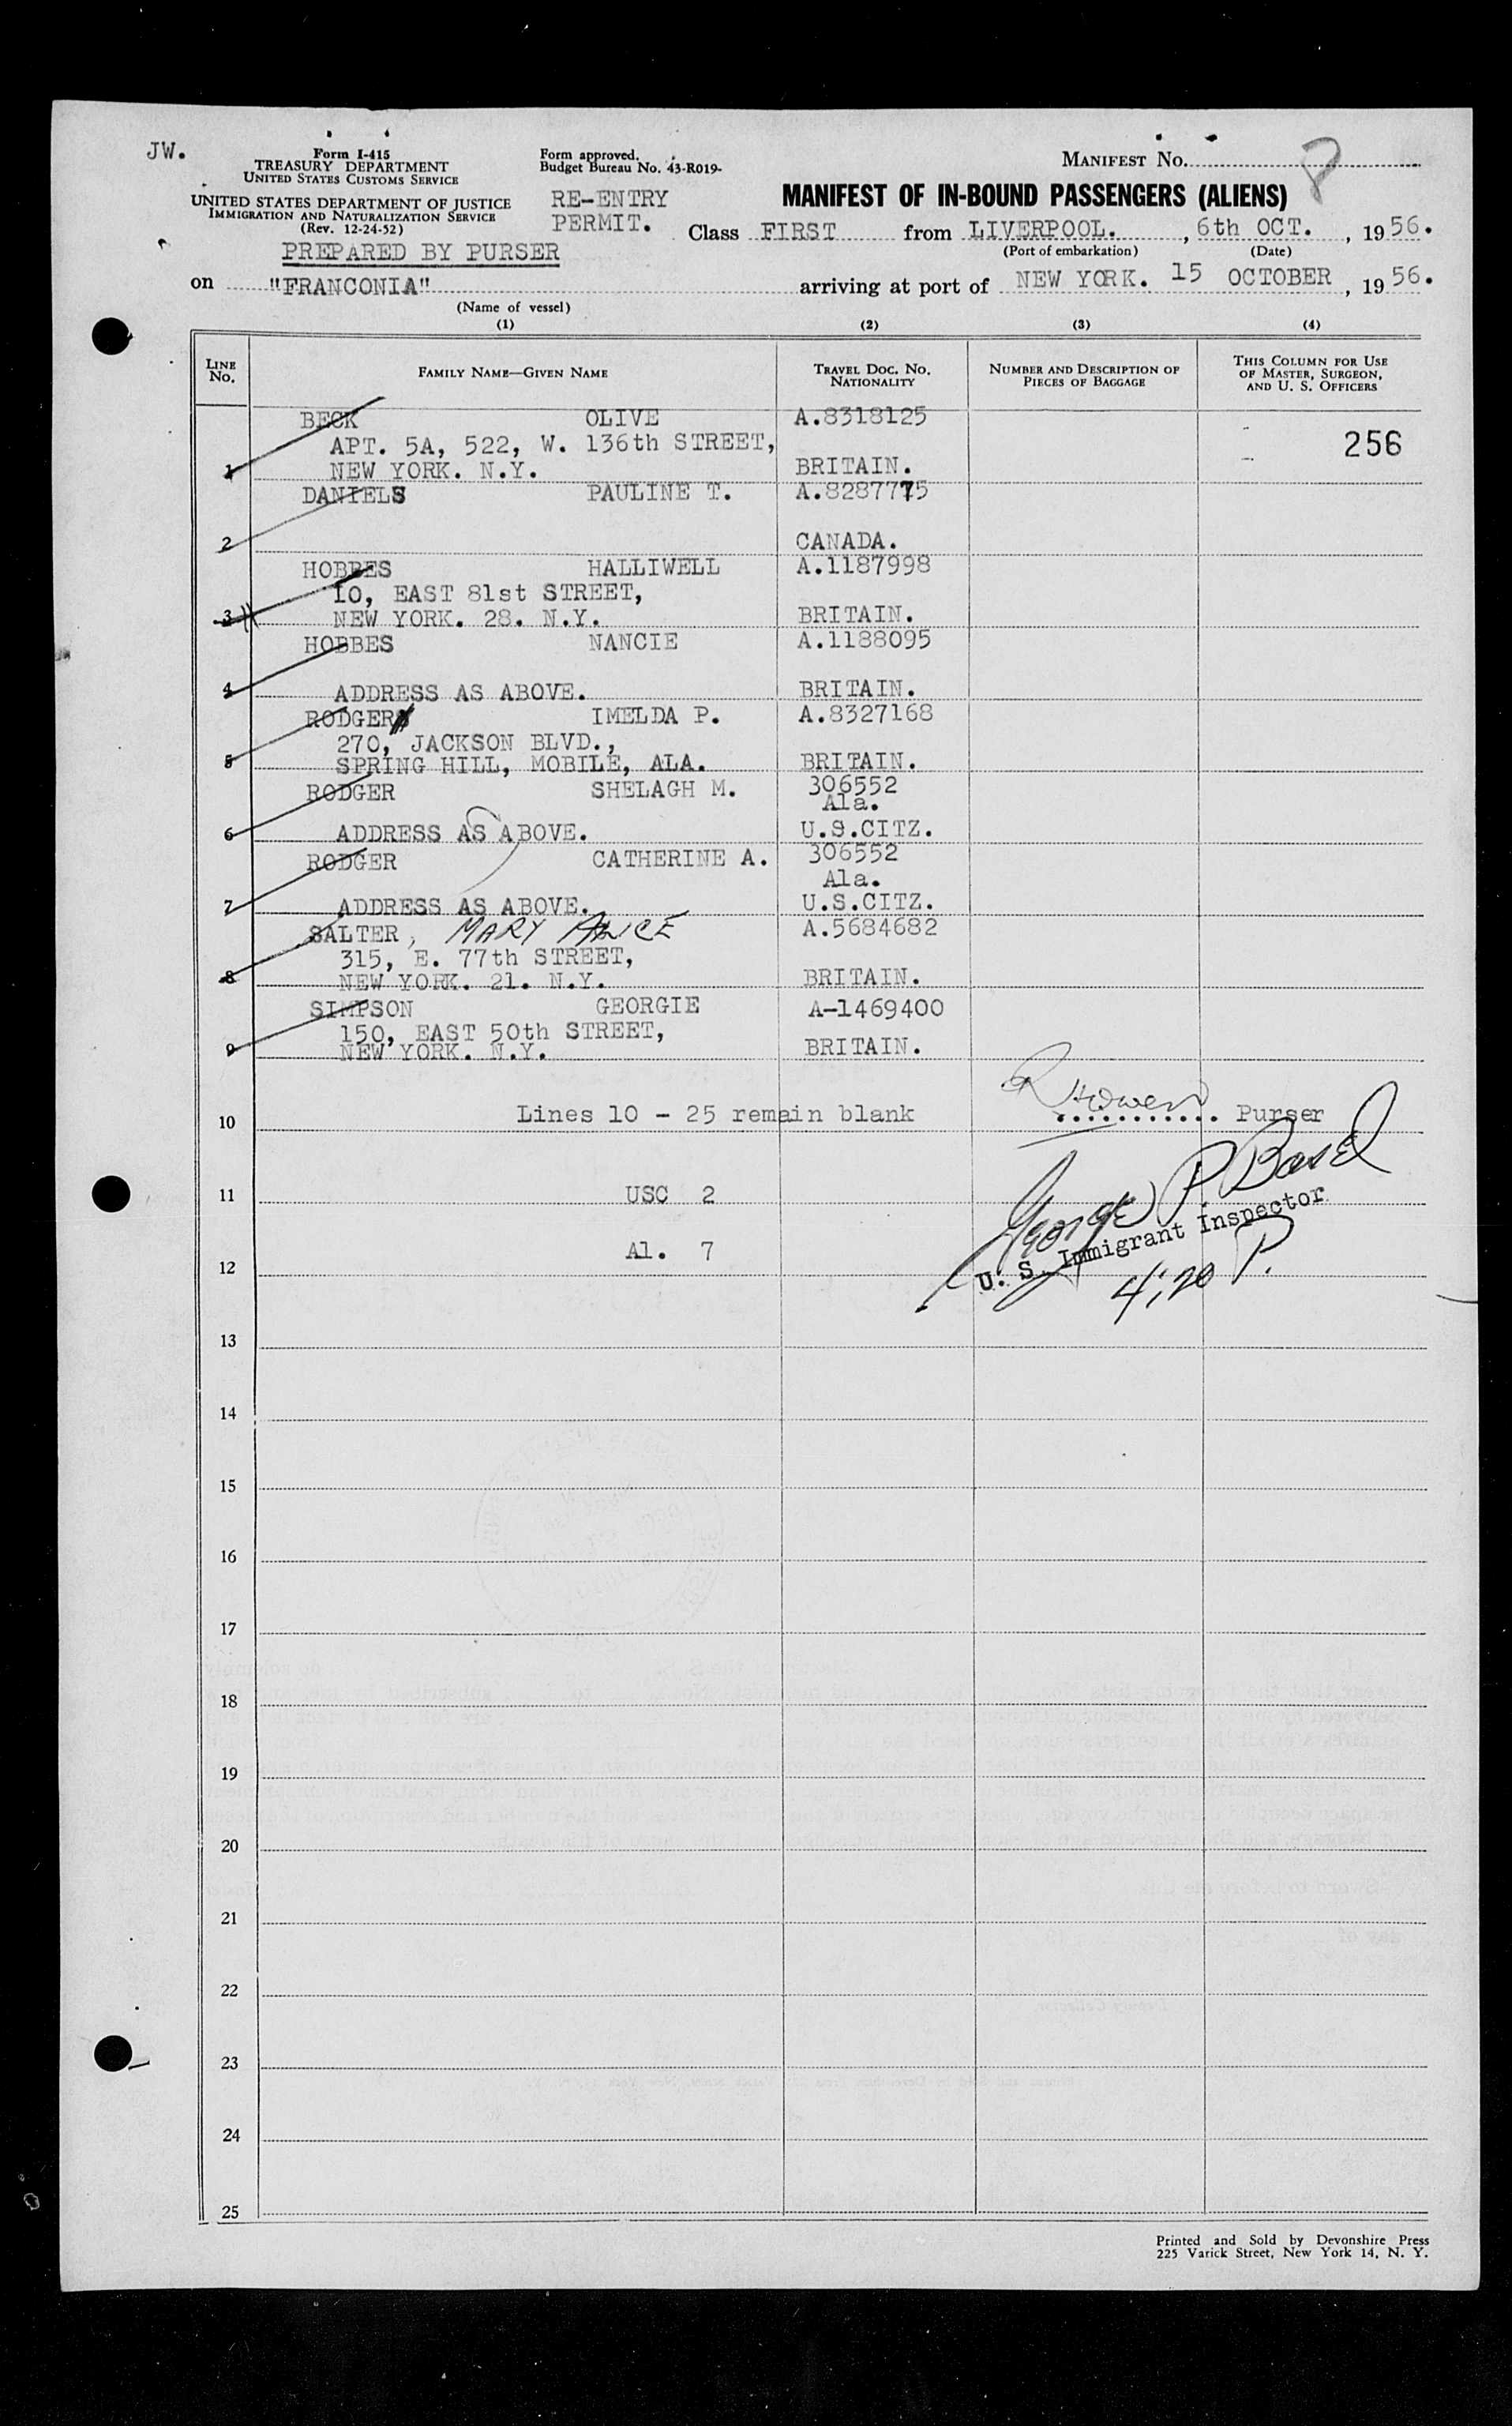 JW.
Form I-415
TREASURY DEPARTMENT
UNITED STATES CUSTOMS SERVICE
UNITED STATES DEPARTMENT OF JUSTICE
IMMIGRATION AND NATURALIZATION SERVICE
(Rev. 12-24-52)
PREPARED BY PURSER
Form approved.
Budget Bureau No. 43-R019-
RE-ENTRY
PERMIT.
MANIFEST NO. 8
MANIFEST OF IN-BOUND PASSENGERS (ALIENS)
Class FIRST from LIVERPOOL. , 6th OCT. , 1956.
(Port of embarkation) (Date)
on "FRANCONIA" arriving at port of NEW YORK. 15 OCTOBER , 1956.
(Name of vessel)
(1) (2) (3) (4)
LINE NO. FAMILY NAME—GIVEN NAME TRAVEL DOC. NO. NATIONALITY NUMBER AND DESCRIPTION OF PIECES OF BAGGAGE THIS COLUMN FOR USE OF MASTER, SURGEON, AND U. S. OFFICERS
BECK OLIVE A.8318125
APT. 5A, 522, W. 136th STREET, 256
1 NEW YORK. N.Y. BRITAIN.
DANIELS PAULINE T. A.8287775
2 CANADA.
HOBBES HALLIWELL A.1187998
10, EAST 81st STREET,
3 NEW YORK. 28. N.Y. BRITAIN.
HOBBES NANCIE A.1188095
4 ADDRESS AS ABOVE. BRITAIN.
RODGER IMELDA P. A.8327168
270, JACKSON BLVD.,
5 SPRING HILL, MOBILE, ALA. BRITAIN.
RODGER SHELAGH M. 306552
Ala.
6 ADDRESS AS ABOVE. U.S.CITZ.
RODGER CATHERINE A. 306552
Ala.
7 ADDRESS AS ABOVE. U.S.CITZ.
SALTER, MARY ALICE A.5684682
315, E. 77th STREET,
8 NEW YORK. 21. N.Y. BRITAIN.
SIMPSON GEORGIE A-1469400
150, EAST 50th STREET,
9 NEW YORK. N.Y. BRITAIN.
10 Lines 10 - 25 remain blank ........... Purser
11 USC 2
George P.
U. S. Immigrant Inspector
12 Al. 7
4:20 P.
13
14
15
16
17
18
19
20
21
22
23
24
25
Printed and Sold by Devonshire Press
225 Varick Street, New York 14, N. Y.